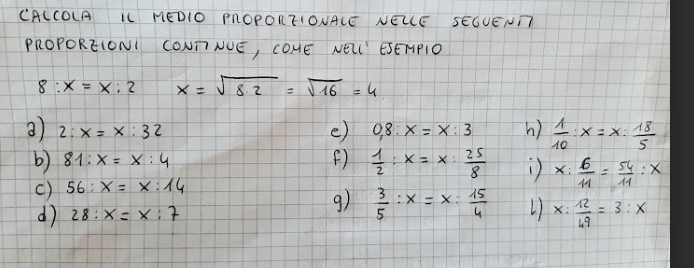 CALCOLA IL MEDIO PROPORZIONALE NELLE SEGUENTI
PROPORZIONI CONTINUE, COME NELL'ESEMPIO
8 : x = x : 2    x = √8·2 = √16 = 4
a) 2 : x = x : 32
b) 81 : x = x : 4
c) 56 : x = x : 14
d) 28 : x = x : 7
e) 0,8 : x = x : 3
f) 1/2 : x = x : 25/8
g) 3/5 : x = x : 15/4
h) 1/10 : x = x : 18/5
i) x : 6/11 = 54/11 : x
l) x : 12/49 = 3 : x